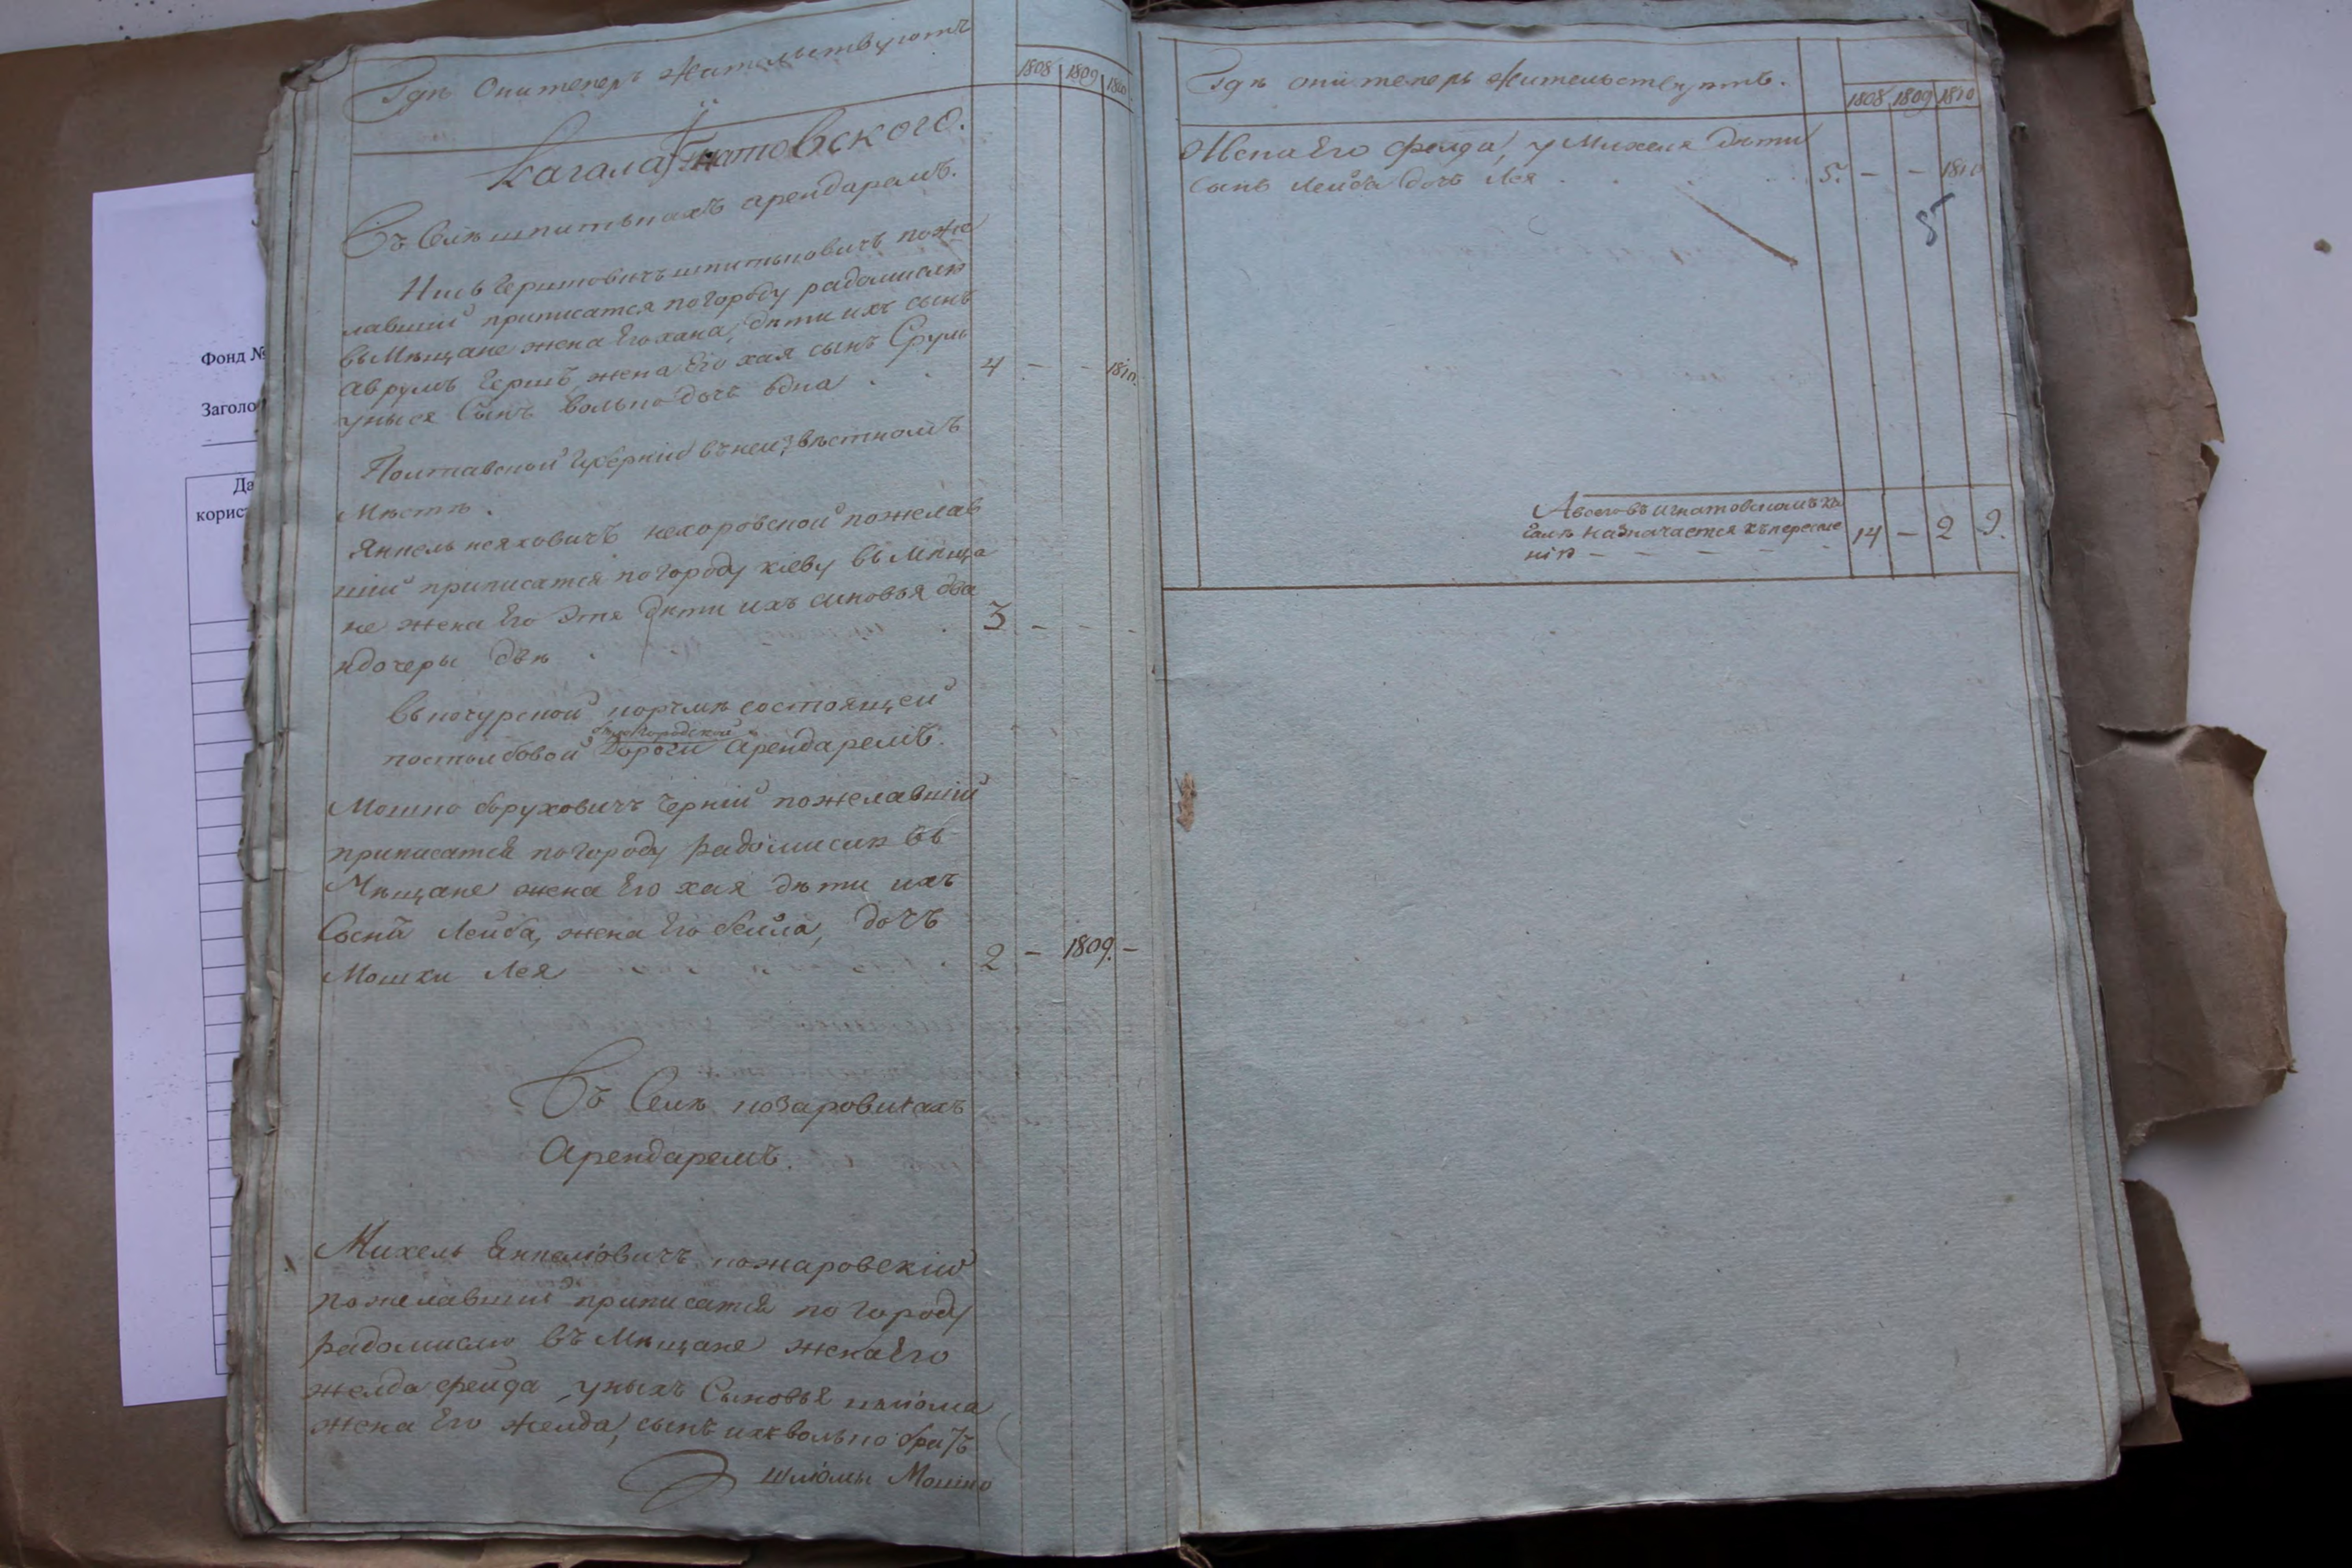 Гдѣ Они теперь жительствуютъ
1808 1809 1810
Кагала Игнатовского.
Въ Селѣ шпитькахъ арендаремъ.
Ицъ Гершковичъ шпитьковичъ поже
лавшій приписатся по городу радомислю
въ Мѣщане жена Его хана, дѣти ихъ сынъ
аврумъ Гершъ, жена Его хая сынъ Сруль
уныхъ Сынъ волько дочь една
4 - - 1810.
Полтавской Губерніи въ неизвѣстномъ
Мѣстѣ.
Янкель исяковичъ нехоровской пожелав
шій приписатся по городу кіеву въ Мѣща
не жена Его Этя дѣти ихъ синовья два
и дочеры двѣ
3 - - -
въ почурской корчмѣ состоящей
по столбовой Дороги арендаремъ.
Мошко борухович Чернїй пожелавшій
приписатся по городу радомислю въ
Мѣщане жена Его хая дѣти ихъ
Сынъ Лейба, жена Его бейла, дочь
Мошки Лея
2 - 1809. -
Въ Селѣ козаровичахъ
Арендаремъ.
Михель Янкелювичъ кожаровскій
пожелавшій приписатся по городу
радомислю въ Мѣщане жена Его
желда фейга, уныхъ Сыновья шліома
жена Его желда, сынъ ихъ волько братъ
шліомы Мошко
Гдѣ они теперь жительствуютъ.
1808 1809 1810
Жена Его фейга, у Михеля дѣти
сынъ Лейба дочь Лея
5. - - 1810
5
А всего въ игнатовскомъ ка
галѣ назначается къ пересле
нію - - - - -
14 - 2 9.
Фонд №
Заголо
Да
корис